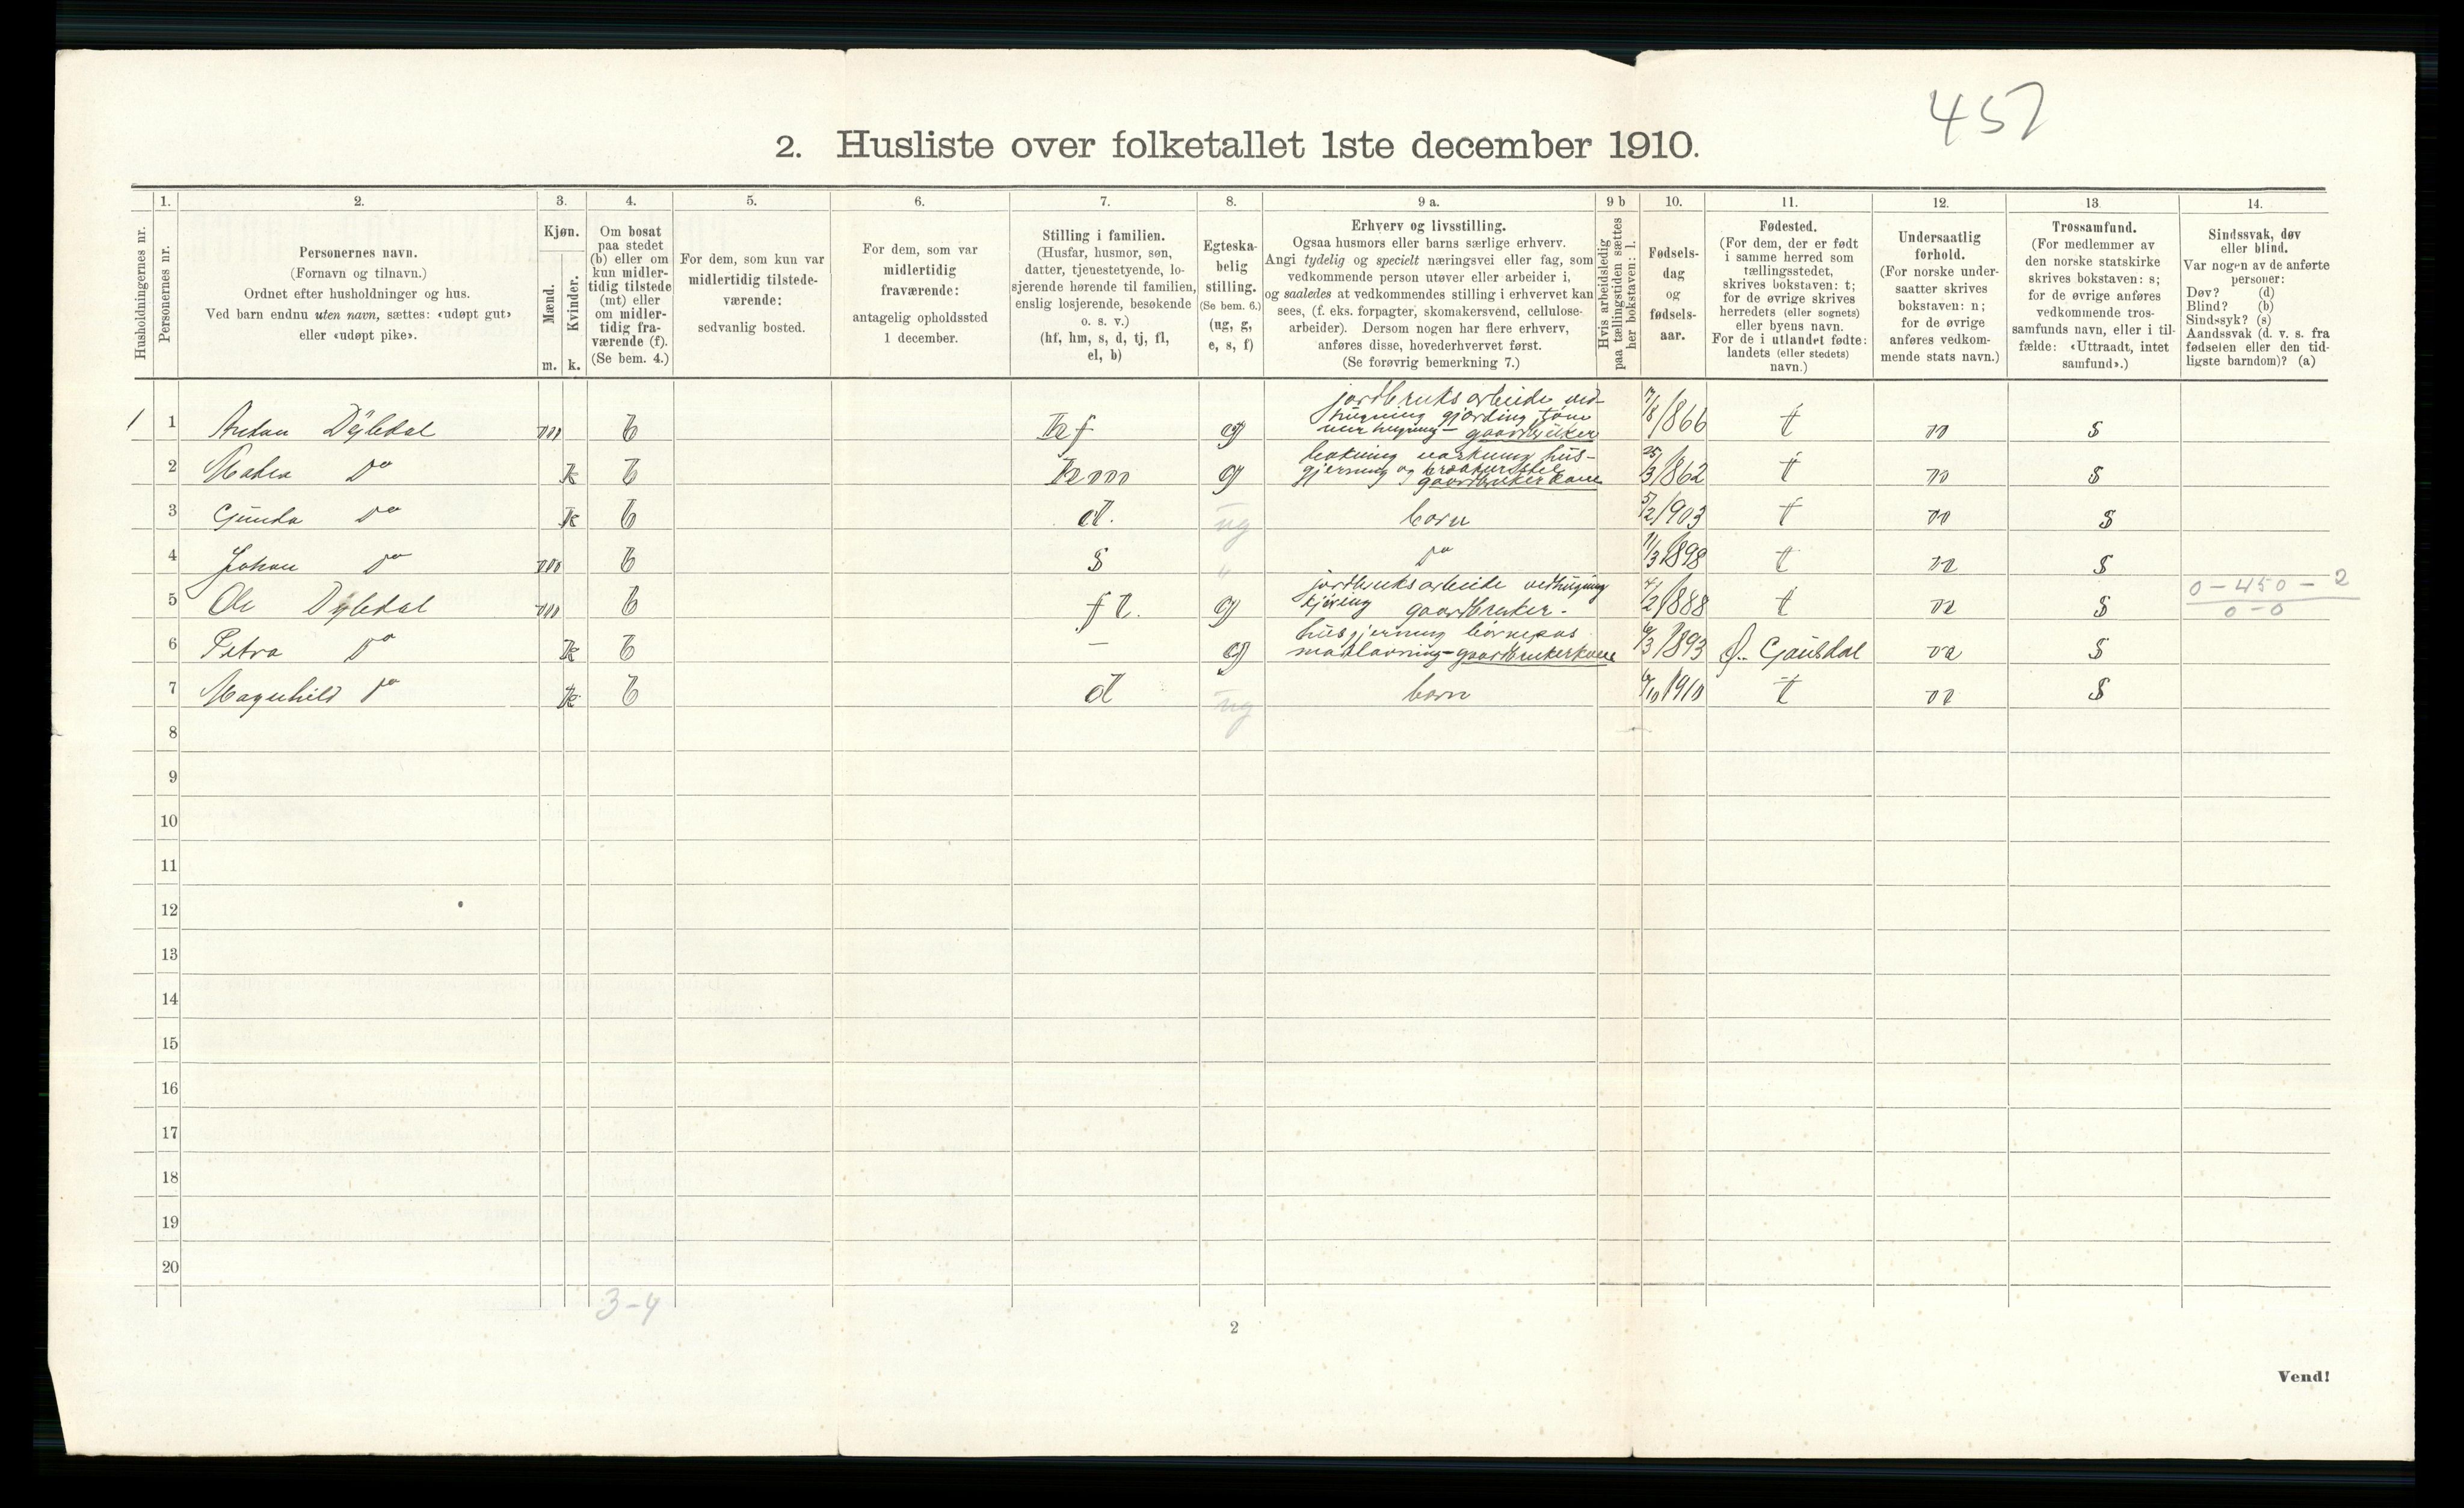 457
2. Husliste over folketallet 1ste december 1910.
Husholdningernes nr.
1.
Personernes nr.
2.
Personernes navn.
(Fornavn og tilnavn.)
Ordnet efter husholdninger og hus.
Ved barn endnu uten navn, sættes: «udøpt gut»
eller «udøpt pike».
3.
Kjøn.
Mænd.
Kvinder.
m. k.
4.
Om bosat
paa stedet
(b) eller om
kun midler-
tidig tilstede
(mt) eller
om midler-
tidig fra-
værende (f).
(Se bem. 4.)
5.
For dem, som kun var
midlertidig tilstede-
værende:
sedvanlig bosted.
6.
For dem, som var
midlertidig
fraværende:
antagelig opholdssted
1 december.
7.
Stilling i familien.
(Husfar, husmor, søn,
datter, tjenestetyende, lo-
sjerende hørende til familien,
enslig losjerende, besøkende
o. s. v.)
(hf, hm, s, d, tj, fl,
el, b)
8.
Egteska-
belig
stilling.
(Se bem. 6.)
(ug, g,
e, s, f)
9 a.
Erhverv og livsstilling.
Ogsaa husmors eller barns særlige erhverv.
Angi tydelig og specielt næringsvei eller fag, som
vedkommende person utøver eller arbeider i,
og saaledes at vedkommendes stilling i erhvervet kan
sees, (f. eks. forpagter, skomakersvend, cellulose-
arbeider). Dersom nogen har flere erhverv,
anføres disse, hovederhvervet først.
(Se forøvrig bemerkning 7.)
9 b
Hvis arbeidsledig
paa tællingstiden sættes
her bokstaven: l.
10.
Fødsels-
dag
og
fødsels-
aar.
11.
Fødested.
(For dem, der er født
i samme herred som
tællingsstedet,
skrives bokstaven: t;
for de øvrige skrives
herredets (eller sognets)
eller byens navn.
For de i utlandet fødte:
landets (eller stedets)
navn.)
12.
Undersaatlig
forhold.
(For norske under-
saatter skrives
bokstaven: n;
for de øvrige
anføres vedkom-
mende stats navn.)
13.
Trossamfund.
(For medlemmer av
den norske statskirke
skrives bokstaven: s;
for de øvrige anføres
vedkommende tros-
samfunds navn, eller i til-
fælde: «Uttraadt, intet
samfund».)
14.
Sindssvak, døv
eller blind.
Var nogen av de anførte
personer:
Døv? (d)
Blind? (b)
Sindssyk? (s)
Aandssvak (d. v. s. fra
fødselen eller den tid-
ligste barndom)? (a)
jordbruksarbeide ved-
hugning gjærding
1 1 Anton Dyledal m b hf g gaardbruker 17/8/866 t n s
bakning vaskning hus-
2 k b hm g gjerning og gaardbrukerkone 25/3/862 t n s
3 Gunda Do k b d. ug barn 5/2/903 t n s
4 Johan Do m b s " Do 11/3 1898 t n s
jordbruksarbeide vedhugning
5 Ole Dyledal m b fl. g kjöring gaardbruker - 4/2/888 t n s 0 - 450 - 2
0 - 0
husgjerning börnepas
6 Petra Do k b - g matlavning - gaardbrukerkone 6/3/893 Ø. Gausdal n s
7 Magnhild Do k b d ug barn 6/10 1910 t n s
8
9
10
11
12
13
14
15
16
17
18
19
20
3-4
2
Vend!